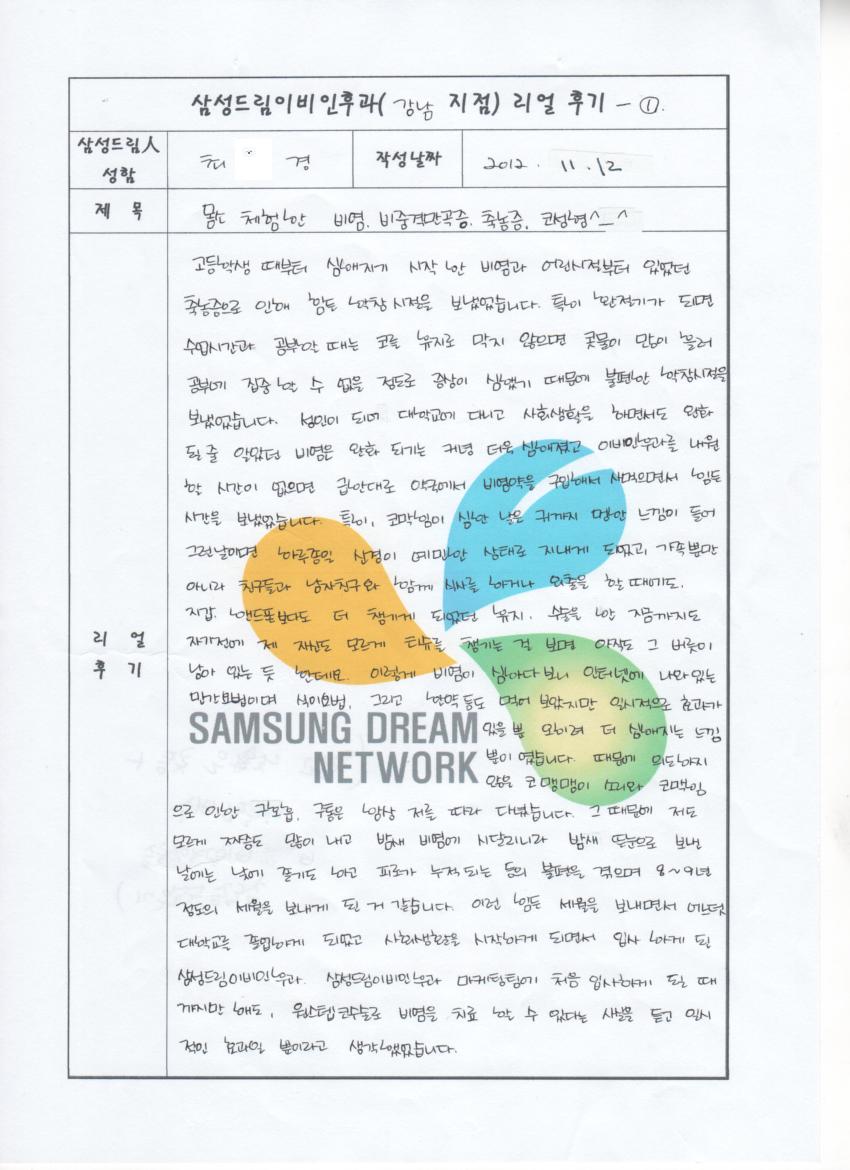 삼성드림이비인후과( 강남 지점) 리얼 후기 - ①.
삼성드림人 성함
최 경
작성날짜
2012. 11. 12
제 목
몸도 체험한 비염, 비중격만곡증, 축농증, 코성형^_^
리 얼 후 기
고등학생 때부터 심해지기 시작한 비염과 어린시절부터 있었던
축농증으로 인해 힘든 학창시절을 보냈었습니다. 특히 환절기가 되면
수업시간과 공부할 때는 코를 휴지로 막지 않으면 콧물이 많이 흘러
공부에 집중할 수 없을 정도로 증상이 심했기 때문에 불편한 학창시절을
보냈었습니다. 성인이 되어 대학교에 다니고 사회생활을 하면서도 완화
될 줄 알았던 비염은 완화 되기는 커녕 더욱 심해졌고 이비인후과를 내원
할 시간이 없으면 급한대로 약국에서 비염약을 구입해서 사먹으면서 힘든
시간을 보냈었습니다. 특히, 코막힘이 심한 날은 귀까지 멍한 느낌이 들어
그런날이면 하루종일 신경이 예민한 상태로 지내게 되었고, 가족뿐만
아니라 친구들과 남자친구와 함께 식사를 하거나 외출을 할 때에도,
지갑, 핸드폰보다도 더 챙기게 되었던 휴지. 수술을 한 지금까지도
자기전에 제 자신도 모르게 티슈를 챙기는 걸 보면 아직도 그 버릇이
남아 있는 듯 한데요. 이렇게 비염이 심하다보니 인터넷에 나와있는
민간요법이며 식이요법, 그리고 한약 등도 먹어 보았지만 일시적으로 효과가
있을 뿐 오히려 더 심해지는 느낌
뿐이였습니다. 때문에 의도하지
않은 코맹맹이 소리와 코막힘
으로 인한 구호흡, 두통은 항상 저를 따라 다녔습니다. 그 때문에 저도
모르게 짜증도 많이 내고 밤새 비염에 시달리니라 밤새 뜬눈으로 보낸
날에는 낮에 졸기도 하고 피로가 누적되는 등의 불편을 겪으며 8~9년
정도의 세월을 보내게 된 거 같습니다. 이런 힘든 세월을 보내면서 어느덧
대학교를 졸업하게 되었고 사회생활을 시작하게 되면서 입사 하게 된
삼성드림이비인후과. 삼성드림이비인후과 마케팅팀에 처음 입사하게 될 때
까지만 해도, 원스텝코수술로 비염을 치료 할 수 있다는 사실을 듣고 일시
적인 효과일 뿐이라고 생각했었습니다.
SAMSUNG DREAM
NETWORK